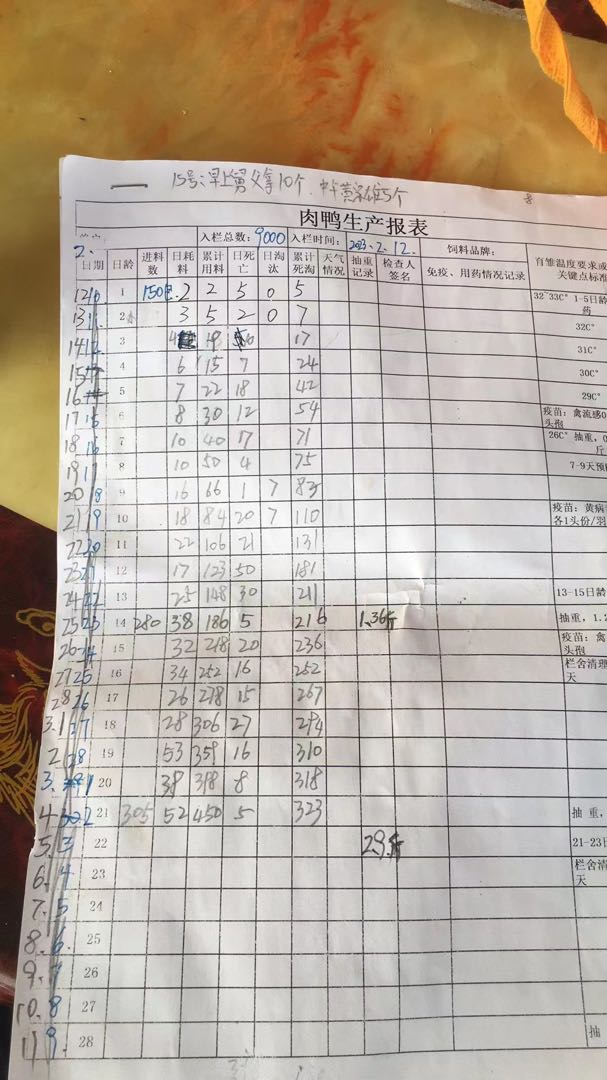 15号:早上舅父拿10个.中午黄 5个
肉鸭生产报表
入栏总数:9000 入栏时间:2023.2.12. 饲料品牌:
2. 日期 日龄 进料数 日耗料 累计用料 日死亡 日淘汰 累计死淘 天气情况 抽重记录 检查人签名 免疫、用药情况记录 育雏温度要求或 关键点标准
12 10 1 150包. 2 2 5 0 5 32~33C° 1-5日龄 药
13 11 2 3 5 2 0 7 32C°
14 12 3 17 31C°
15 4 6 15 7 24 30C°
16 5 7 22 18 42 29C°
17 15 6 8 30 12 54 疫苗:禽流感0 头孢
18 16 7 10 40 17 71 26C° 抽重,0 斤
19 17 8 10 50 4 75 7-9天预
20 18 9 16 66 1 7 83
21 19 10 18 84 20 7 110 疫苗:黄病 各1头份/羽
22 20 11 22 106 21 131
23 21 12 17 123 50 181
24 22 13 25 148 30 211 13-15日龄
25 23 14 280 38 186 5 216 1.36斤 抽重,1.2
26 24 15 32 218 20 236 疫苗:禽 头孢
27 25 16 34 252 16 252 栏舍清理 天
28 26 17 26 278 15 267
3.1 27 18 28 306 27 294
2 28 19 53 359 16 310
3. 1 20 38 398 8 318
4 2 21 305 52 450 5 323 抽重,
5. 3 22 2.9斤 21-23日
6. 4 23 栏舍清 天
7. 5 24
8. 6 25
9. 7 26
10. 8 27
11 9 28 抽